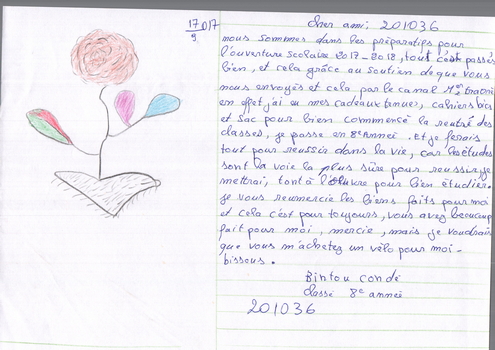 17 2017
9
cher ami: 201036
nous sommes dans les préparatifs pour
l'ouverture scolaire 2017-2018, tout c'est passés
bien, et cela grâce au soutien de que vous
nous envoyés et cela par le canal Mr traoré
en effet j'ai eu mes cadeaux tenues, cahiers bics
et sac pour bien commencé la rentré des
classes, je passe en 8e année. Et je ferais
tout pour reussir dans la vie, car les études
sont la voie la plus sûre pour reussir je
mettrai, tont à l'œuvre pour bien étudier
je vous reumercie les biens faits pour moi
et cela c'est pour toujours, vous avez beaucoup
fait pour moi, mercie, mais je voudrais
que vous m'achetez un vélo pour moi-
bissous.
Bintou condé
classe 8e année
201036